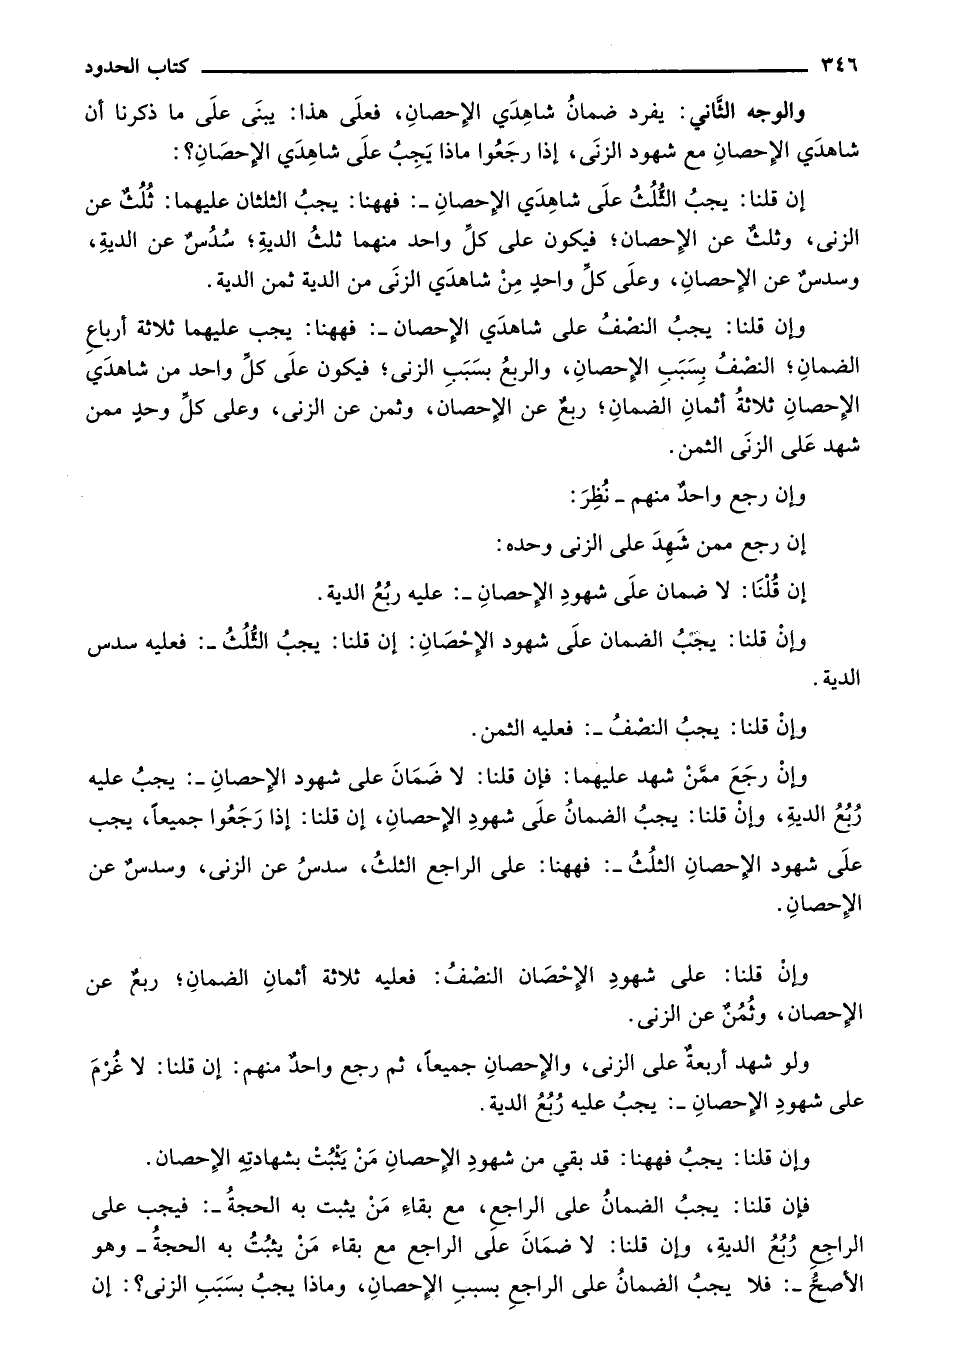 ٣٤٦ كتاب الحدود
والوجه الثَّاني: يفرد ضمانُ شاهِدَي الإحصانِ، فعلَى هذا: يبنَى علَى ما ذكرنا أن
شاهدَي الإحصانِ مع شهود الزنَى، إذا رجَعُوا ماذا يَجِبُ علَى شاهِدَي الإحصَانِ؟:
إن قلنا: يجبُ الثُّلُثُ علَى شاهِدَي الإحصانِ ـ: فههنا: يجبُ الثلثان عليهما: ثُلُثٌ عن
الزنى، وثلثٌ عن الإحصان؛ فيكون على كلِّ واحد منهما ثلثُ الديةِ؛ سُدُسٌ عن الديةِ،
وسدسٌ عن الإحصانِ، وعلَى كلِّ واحدٍ مِنْ شاهدَي الزنَى من الدية ثمن الدية.
وإن قلنا: يجبُ النصْفُ على شاهدَي الإحصان ـ: فههنا: يجب عليهما ثلاثة أرباعِ
الضمانِ؛ النصْفُ بِسَبَبِ الإحصانِ، والربعُ بسَبَبِ الزنى؛ فيكون علَى كلِّ واحد من شاهدَي
الإحصانِ ثلاثةُ أثمانِ الضمانِ؛ ربعٌ عن الإحصان، وثمن عن الزنى، وعلى كلِّ وحدٍ ممن
شهد عَلى الزنَى الثمن.
وإن رجع واحدٌ منهم ـ نُظِرَ:
إن رجع ممن شَهِدَ على الزنى وحده:
إن قُلْنَا: لا ضمان علَى شهودِ الإحصانِ ـ: عليه ربُعُ الدية.
وإنْ قلنا: يجبُ الضمان علَى شهود الإحْصَانِ: إن قلنا: يجبُ الثُّلُثُ ـ: فعليه سدس
الدية.
وإنْ قلنا: يجبُ النصْفُ ـ: فعليه الثمن.
وإنْ رجَعَ ممَّنْ شهد عليهما: فإن قلنا: لا ضَمَانَ على شهود الإحصانِ ـ: يجبُ عليه
رُبُعُ الديةِ، وإنْ قلنا: يجبُ الضمانُ علَى شهودِ الإحصانِ، إن قلنا: إذا رَجَعُوا جميعاً، يجب
علَى شهودِ الإحصانِ الثلُثُ ـ: فههنا: على الراجع الثلثُ، سدسُ عن الزنى، وسدسٌ عن
الإحصانِ.
وإنْ قلنا: على شهودِ الإحْصَان النصْفُ: فعليه ثلاثة أثمانِ الضمانِ؛ ربعٌ عن
الإحصان، وثُمُنٌ عن الزنى.
ولو شهد أربعةٌ على الزنى، والإحصانِ جميعاً، ثم رجع واحدٌ منهم: إن قلنا: لا غُرْمَ
على شهودِ الإحصانِ ـ: يجبُ عليه رُبُعُ الدية.
وإن قلنا: يجبُ فههنا: قد بقي من شهودِ الإحصانِ مَنْ يَثْبُتْ بشهادتِهِ الإحصان.
فإن قلنا: يجبُ الضمانُ على الراجعِ، مع بقاءِ مَنْ يثبت به الحجةُ ـ: فيجب على
الراجِعِ رُبُعُ الديةِ، وإن قلنا: لا ضمَانَ علَى الراجع مع بقاء مَنْ يثبُتُ به الحجةُ ـ وهو
الأصحُّ ـ: فلا يجبُ الضمانُ على الراجعِ بسببِ الإحصانِ، وماذا يجبُ بسَبَبِ الزنى؟: إن